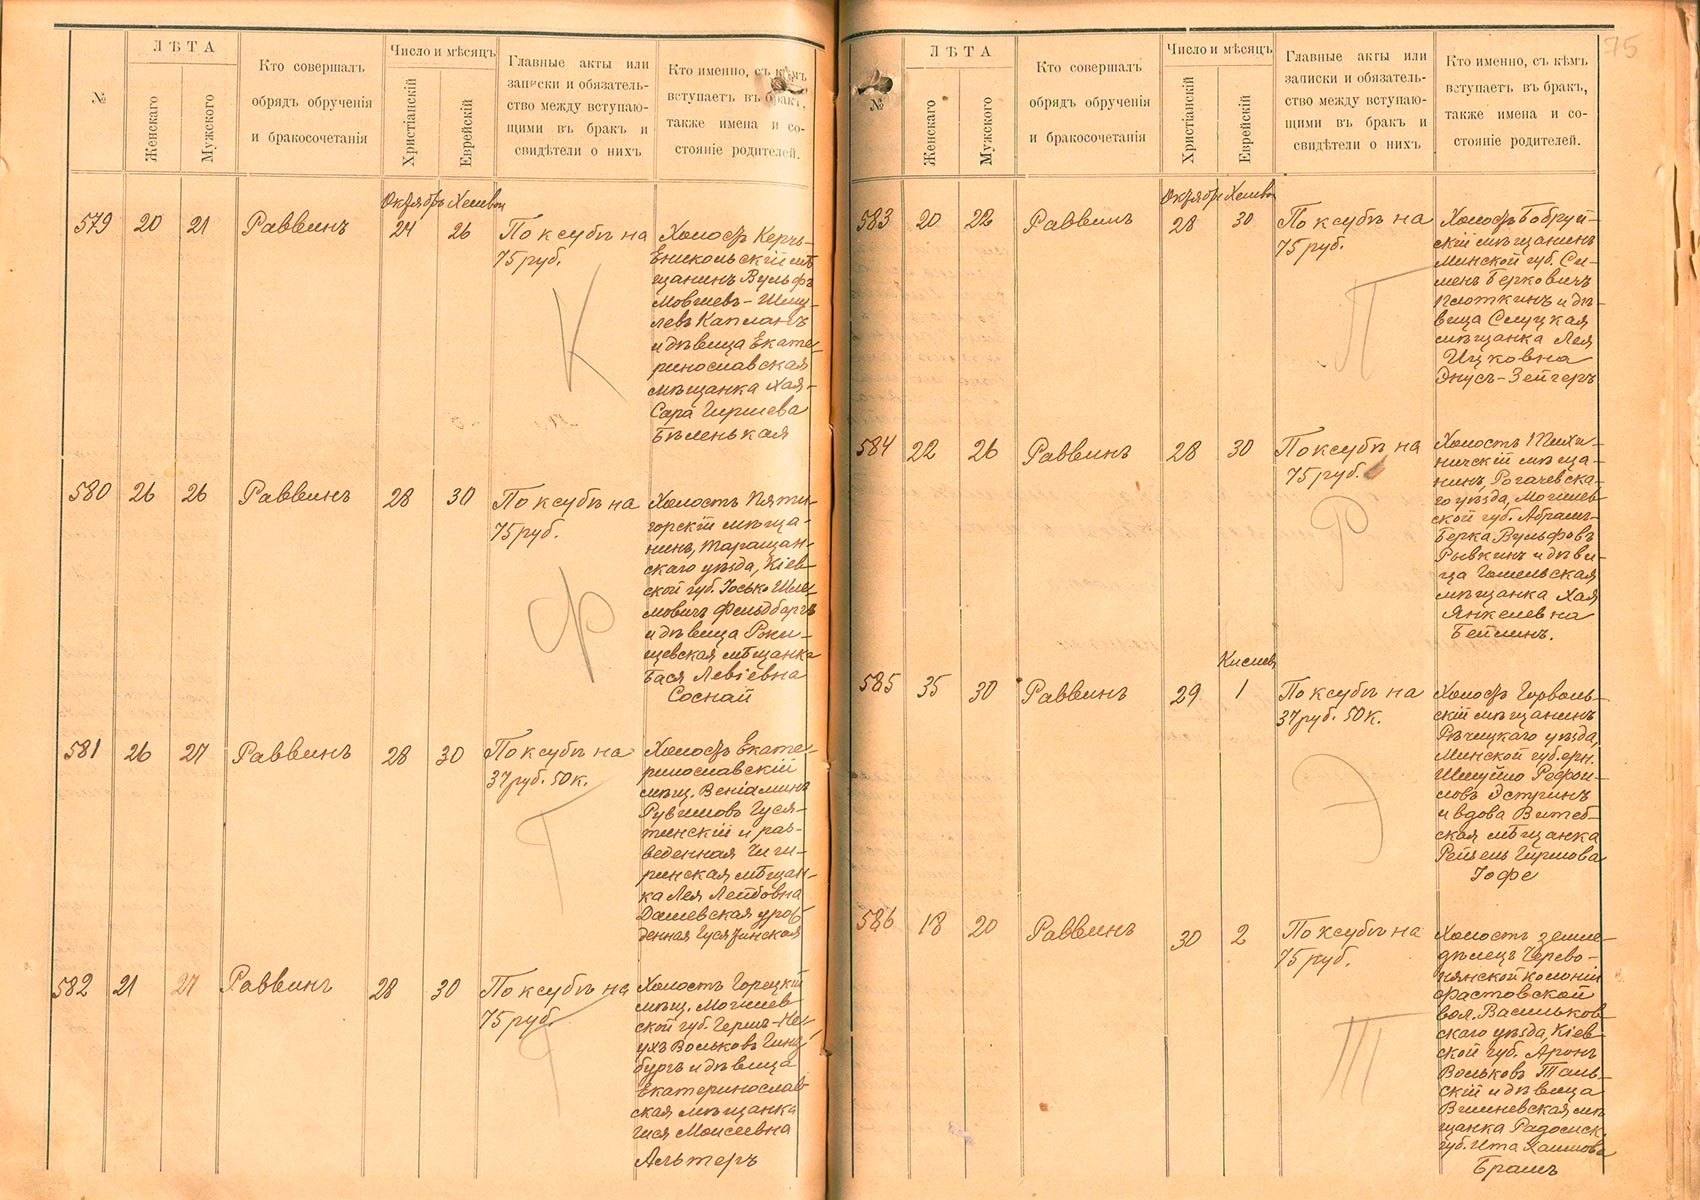 №
ЛѢТА
Женскаго
Мужского
Кто совершалъ
обрядъ обрученія
и бракосочетанія
Число и мѣсяцъ
Христіанскій
Еврейскій
Главные акты или
записки и обязатель-
ство между вступаю-
щими въ бракъ и
свидѣтели о нихъ
Кто именно, съ кѣмъ
вступаетъ въ бракъ,
также имена и со-
стояніе родителей.
Октябрь Хешвон
579 20 21 Раввинъ 24 26
По ксубѣ на
75 руб.
К
Холостъ Керчь-
Еникольскій мѣ
щанинъ Вульфъ
Мовшев-Шму-
левъ Капланъ
и дѣвица Екате-
ринославская
мѣщанка Хая-
Сара Гиршева
Бѣленькая
580 26 26 Раввинъ 28 30
По ксубѣ на
75 руб.
Ф
Холостъ Пяти-
горскій мѣща-
нинъ, Таращан-
скаго уѣзда, Кіев-
ской губ. Іосько Шле-
мовичъ Фельдбергъ
и дѣвица Роки-
щевская мѣщанка
Бася Левіевна
Соснай
581 26 27 Раввинъ 28 30
По ксубѣ на
37 руб. 50 к.
Г
Холостъ Екате-
ринославскій
мѣщ. Веніаминъ
Рувимов Гуся-
тинскій и раз-
веденная Чиги-
ринская мѣщан-
ка Лея Лейбовна
Дашевская урож
денная Гусятинская
582 21 27 Раввинъ 28 30
По ксубѣ на
75 руб.
Г
Холостъ Горецкій
мѣщ. Могилев
ской губ. Гершъ-Не-
ухъ Вольковъ Гинз
бургъ и дѣвица
Екатеринослав
ская мѣщанка
Гися Моисеевна
Альтеръ
75
№
ЛѢТА
Женскаго
Мужского
Кто совершалъ
обрядъ обрученія
и бракосочетанія
Число и мѣсяцъ
Христіанскій
Еврейскій
Главные акты или
записки и обязатель-
ство между вступаю-
щими въ бракъ и
свидѣтели о нихъ
Кто именно, съ кѣмъ
вступаетъ въ бракъ,
также имена и со-
стояніе родителей.
Октябрь Хешвон
583 20 22 Раввинъ 28 30
По ксубѣ на
75 руб.
П
Холостъ Бобруй-
скій мѣщанинъ
Минской губ. Си-
менъ Берковичъ
Плоткинъ и дѣ-
вица Слуцкая
мѣщанка Лея
Ицковна
Энусъ-Зейгеръ
584 22 26 Раввинъ 28 30
По ксубѣ на
75 руб.
Р
Холостъ Тихи-
ничскій мѣща-
нинъ, Рогачевска-
го уѣзда, Могилев
ской губ. Абрамъ-
Берка Вульфовъ
Рывкинъ и дѣви-
ца Гомельская
мѣщанка Хая
Янкелевна
Бейлинъ.
Кислев
585 35 30 Раввинъ 29 1
По ксубѣ на
37 руб. 50 к.
Э
Холостъ Горволь-
скій мѣщанинъ
Рѣчицкаго уѣзда,
Минской губерн.
Шмуйло Рефои-
ловъ Эстринъ
и вдова Витеб-
ская мѣщанка
Рейзель Гиршова
Іофе
586 18 20 Раввинъ 30 2
По ксубѣ на
75 руб.
Т
Холостъ земле-
дѣлецъ Черево-
нянской колоніи
Фастовской
вол. Васильков-
скаго уѣзда, Кіев-
ской губ. Аронъ
Вольковъ Таль-
скій и дѣвица
Вишневская мѣ
щанка Радомск.
губ. Ита Хаимова
Брамъ